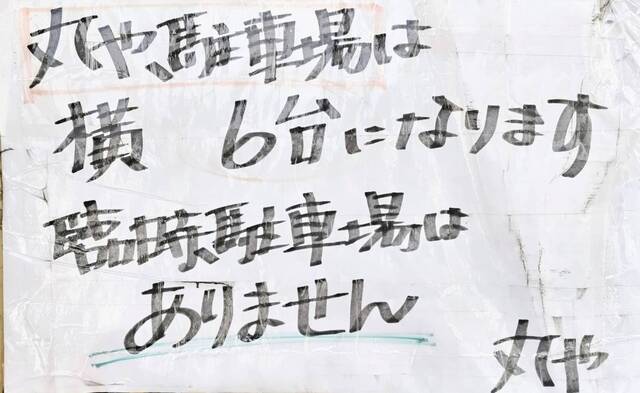 丸や、駐車場は
横 6台になります
臨時駐車場は
ありません
丸や